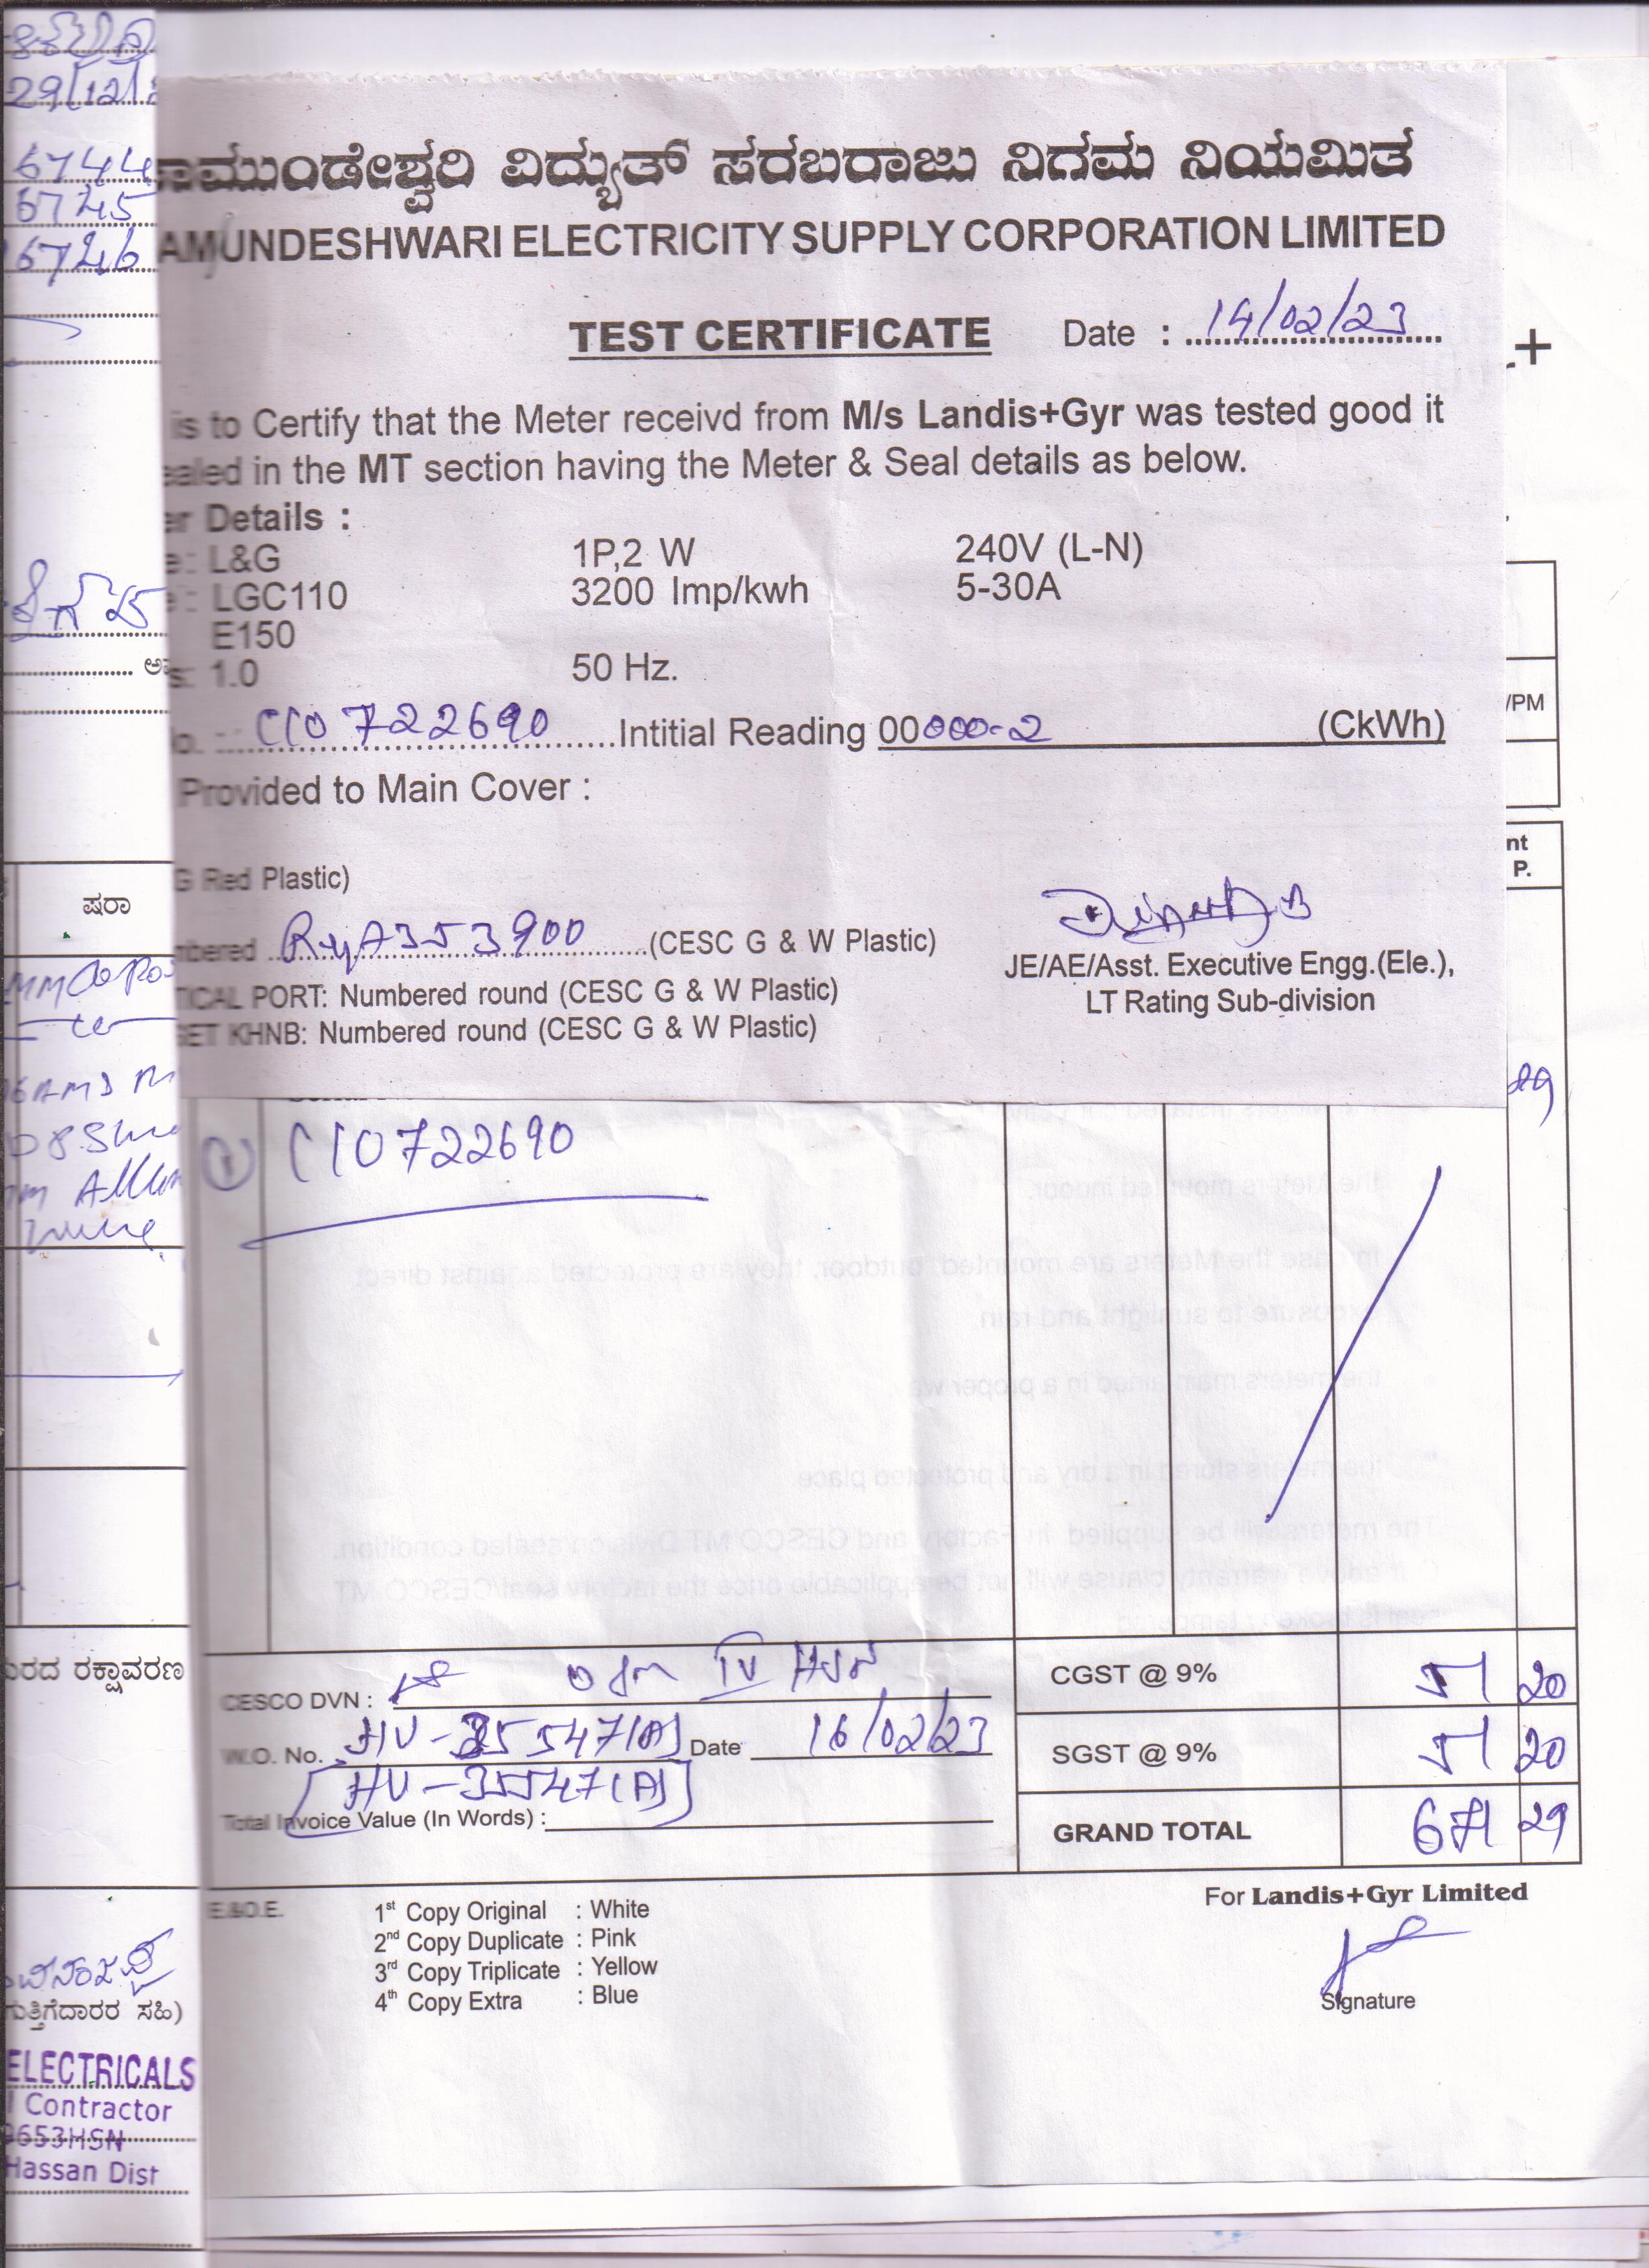 29/12/
6744
6745
6746
ಷರಾ
ರದ ರಕ್ಷಾವರಣ
ಗುತ್ತಿಗೆದಾರರ ಸಹಿ)
ELECTRICALS
Contractor
9653HSN
Hassan Dist
ಾಮುಂಡೇಶ್ವರಿ ವಿದ್ಯುತ್ ಸರಬರಾಜು ನಿಗಮ ನಿಯಮಿತ
AMUNDESHWARI ELECTRICITY SUPPLY CORPORATION LIMITED
TEST CERTIFICATE Date : 14/02/23
is to Certify that the Meter receivd from M/s Landis+Gyr was tested good it
ealed in the MT section having the Meter & Seal details as below.
er Details :
e : L&G 1P,2 W 240V (L-N)
: LGC110 3200 Imp/kwh 5-30A
E150
s: 1.0 50 Hz.
o. : C10722690 Intitial Reading 00000-2 (CkWh)
Provided to Main Cover :
G Red Plastic)
mbered RyA353900 (CESC G & W Plastic)
TICAL PORT: Numbered round (CESC G & W Plastic)
SET KHNB: Numbered round (CESC G & W Plastic)
JE/AE/Asst. Executive Engg.(Ele.),
LT Rating Sub-division
/PM
nt
P.
89
① C10722690
CGST @ 9% 51 20
CESCO DVN : IV HSN
W.O. No. HV-35547(A) Date 16/02/23
SGST @ 9% 51 20
[HV-35547(A)]
Total Invoice Value (In Words) :
GRAND TOTAL 671 29
E.&O.E.
1st Copy Original : White
2nd Copy Duplicate : Pink
3rd Copy Triplicate : Yellow
4th Copy Extra : Blue
For Landis+Gyr Limited
Signature